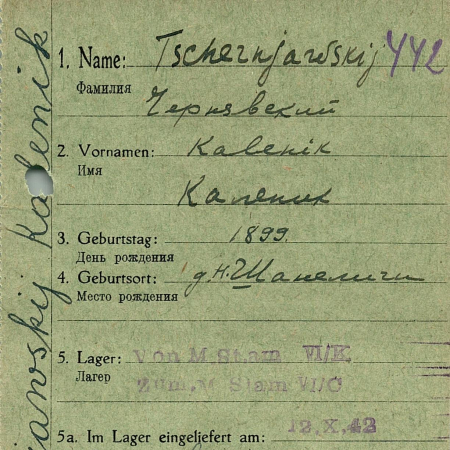 1. Name: Tschernjawskij 442
Фамилия
Чернявский
2. Vornamen: Kalenik
Имя
Каленик
3. Geburtstag: 1899.
День рождения
4. Geburtsort: д.н. Шапеличи
Место рождения
5. Lager: Von M. Stam VI/K
Лагер
Zum. M Stam VI/C
5a. Im Lager eingeliefert am: 12.X.42
jawskij Kalenik